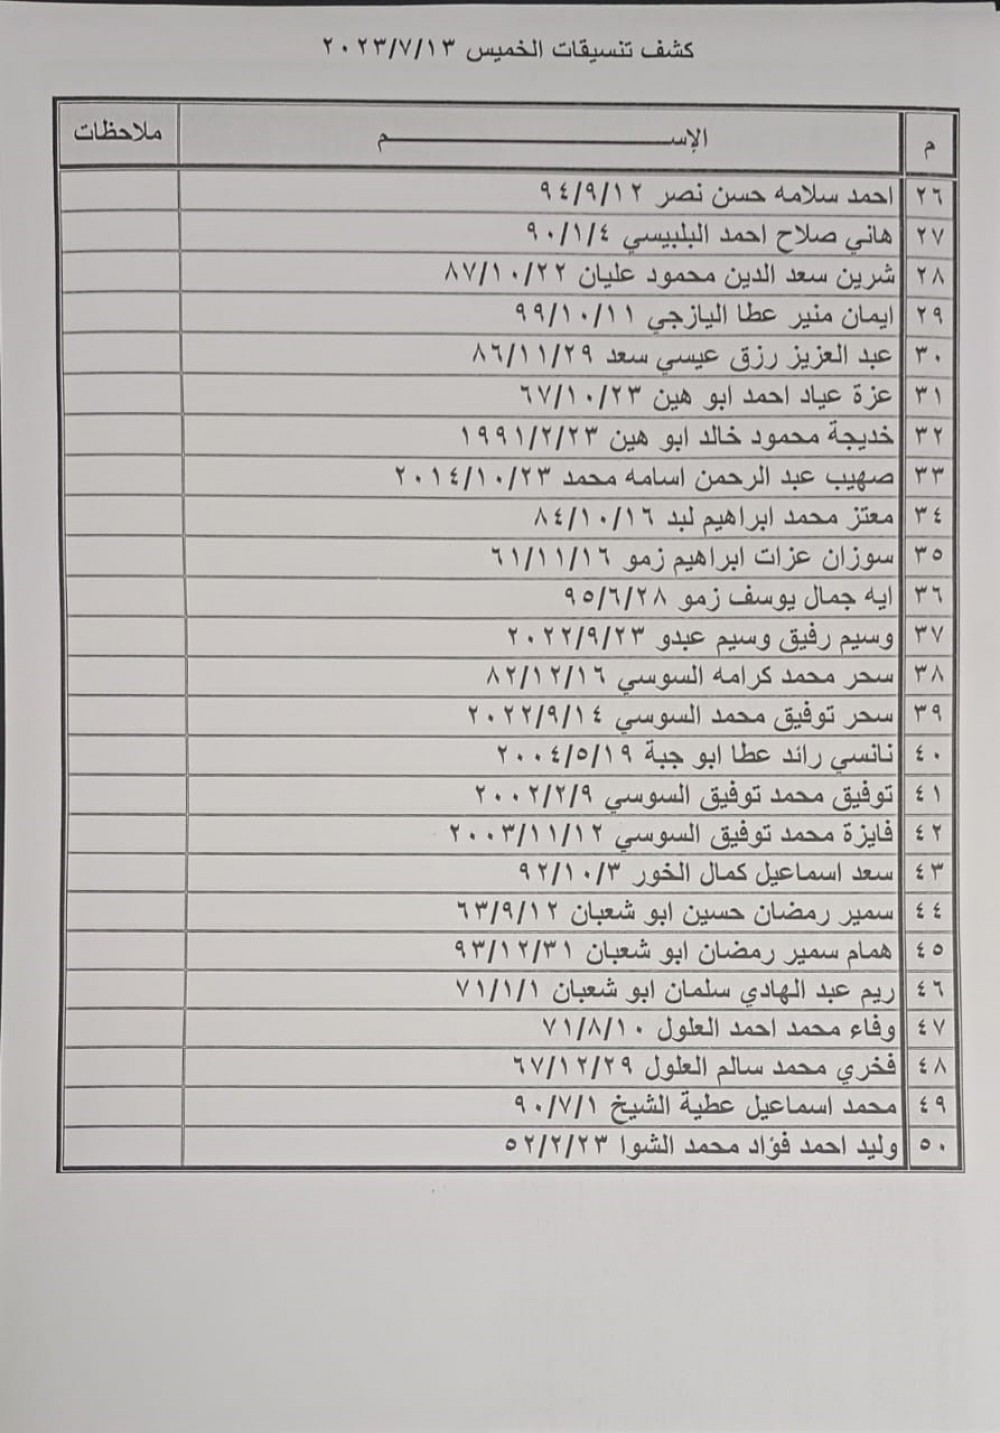 كشف تنسيقات الخميس ٢٠٢٣/٧/١٣
م الإســـــــــــم ملاحظات
٢٦ احمد سلامه حسن نصر ٩٤/٩/١٢
٢٧ هاني صلاح احمد البلبيسي ٩٠/١/٤
٢٨ شرين سعد الدين محمود عليان ٨٧/١٠/٢٢
٢٩ ايمان منير عطا اليازجي ٩٩/١٠/١١
٣٠ عبد العزيز رزق عيسي سعد ٨٦/١١/٢٩
٣١ عزة عياد احمد ابو هين ٦٧/١٠/٢٣
٣٢ خديجة محمود خالد ابو هين ١٩٩١/٢/٢٣
٣٣ صهيب عبد الرحمن اسامه محمد ٢٠١٤/١٠/٢٣
٣٤ معتز محمد ابراهيم لبد ٨٤/١٠/١٦
٣٥ سوزان عزات ابراهيم زمو ٦١/١١/١٦
٣٦ ايه جمال يوسف زمو ٩٥/٦/٢٨
٣٧ وسيم رفيق وسيم عبدو ٢٠٢٢/٩/٢٣
٣٨ سحر محمد كرامه السوسي ٨٢/١٢/١٦
٣٩ سحر توفيق محمد السوسي ٢٠٢٢/٩/١٤
٤٠ نانسي رائد عطا ابو جبة ٢٠٠٤/٥/١٩
٤١ توفيق محمد توفيق السوسي ٢٠٠٢/٢/٩
٤٢ فايزة محمد توفيق السوسي ٢٠٠٣/١١/١٢
٤٣ سعد اسماعيل كمال الخور ٩٢/١٠/٣
٤٤ سمير رمضان حسين ابو شعبان ٦٣/٩/١٢
٤٥ همام سمير رمضان ابو شعبان ٩٣/١٢/٣١
٤٦ ريم عبد الهادي سلمان ابو شعبان ٧١/١/١
٤٧ وفاء محمد احمد العلول ٧١/٨/١٠
٤٨ فخري محمد سالم العلول ٦٧/١٢/٢٩
٤٩ محمد اسماعيل عطية الشيخ ٩٠/٧/١
٥٠ وليد احمد فؤاد محمد الشوا ٥٢/٢/٢٣